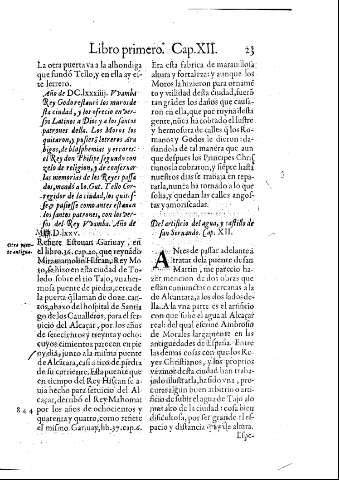 Libro primero. Cap. XII.
23
La otra puerta va a la alhondiga
que fundò Tello, y en ella ay este
letrero.
Año de DC.lxxxiiij. Vvamba
Rey Godo restaurò los muros de
esta ciudad, y los ofrecio en versos
Latinos a Dios y a los santos
patrones della. Los Moros los
quitaron, y pusierõ letreros Arabigos,
de blasfemias y errores:
el Rey don Philipe segundo con
zelo de religion, y de conseruar
las memorias de los Reyes passados,
mandò a Io. Gut. Tello Corregidor
de la ciudad, los quitasse
y pusiesse como antes estauan
los santos patrones, con los versos
del Rey Vvamba. Año de
M.D.lxxv.
Otra puente
antigua.
Refiere Esteuan Garíuay, en
el libro.36.cap.20. que reynãdo
Miramamolin Hiscan, Rey Moro,
se hizo en esta ciudad de Toledo
sobre el rio Tajo, vna hermosa
puente de piedra, cerca de
la puerta q̃ llaman de doze cantos,
abaxo del hospital de Santiago
de los Caualleros, para el seruicio
del Alcaçar, por los años
de setecientos y treinta y ocho
cuyos cimientos parecen en pie
oy dia, junto a la misma puente
de Alcãtara, casi a tiro de piedra
de su corriente. Esta puente que
en tiempo del Rey Hiscan se auia
hecho para seruicio del Alcaçar,
derribò el Rey Mahomat
844
por los años de ochocientos y
quarenta y quatro, como refiere
el mismo Garíuay, lib.37.cap.6.
Era esta fabrica de marauillosa
altura y fortaleza: y aunque los
Moros la hizieron para ornato
y vtilidad desta ciudad, fuerõ
tan grãdes los daños que causaron
en ella, que por ruyna desta
gente, nũca ha cobrado el lustre
y hermosura de calles q̃ los Romanos
y Godos le dieron: dandosela
de tal manera que aunque
despues los Principes Christianos
la cobraron, y siẽpre hasta
nuestros dias se trabaja en repararla,
nunca ha tornado a lo que
solia, y quedan las calles angostas
y anascaradas.
Del artificio del agua, y castillo de
san Seruando. Cap. XII.
ANtes de passar adelante a
tratar dela puente de san
Martin, me parecio hazer
mencion de dos obras que
estan cõjuntas o cercanas a la
de Alcantara, a los dos lados della.
A la vna parte es el artificio
con que sube el agua al Alcaçar
real: del qual escriue Ambrosio
de Morales largamente en las
antiguedades de España. Entre
las demas cosas con que los Reyes
Christianos, y los proprios
vezinos desta ciudad han trabajado
illustrarla, ha sido vna, procurar
algun buen arbitrio o artificio
de subir el agua de Tajo a lo
mas alto de la ciudad: cosa bien
dificultosa, por ser grande el espacio
y distancia que ay de altura.
Espe-